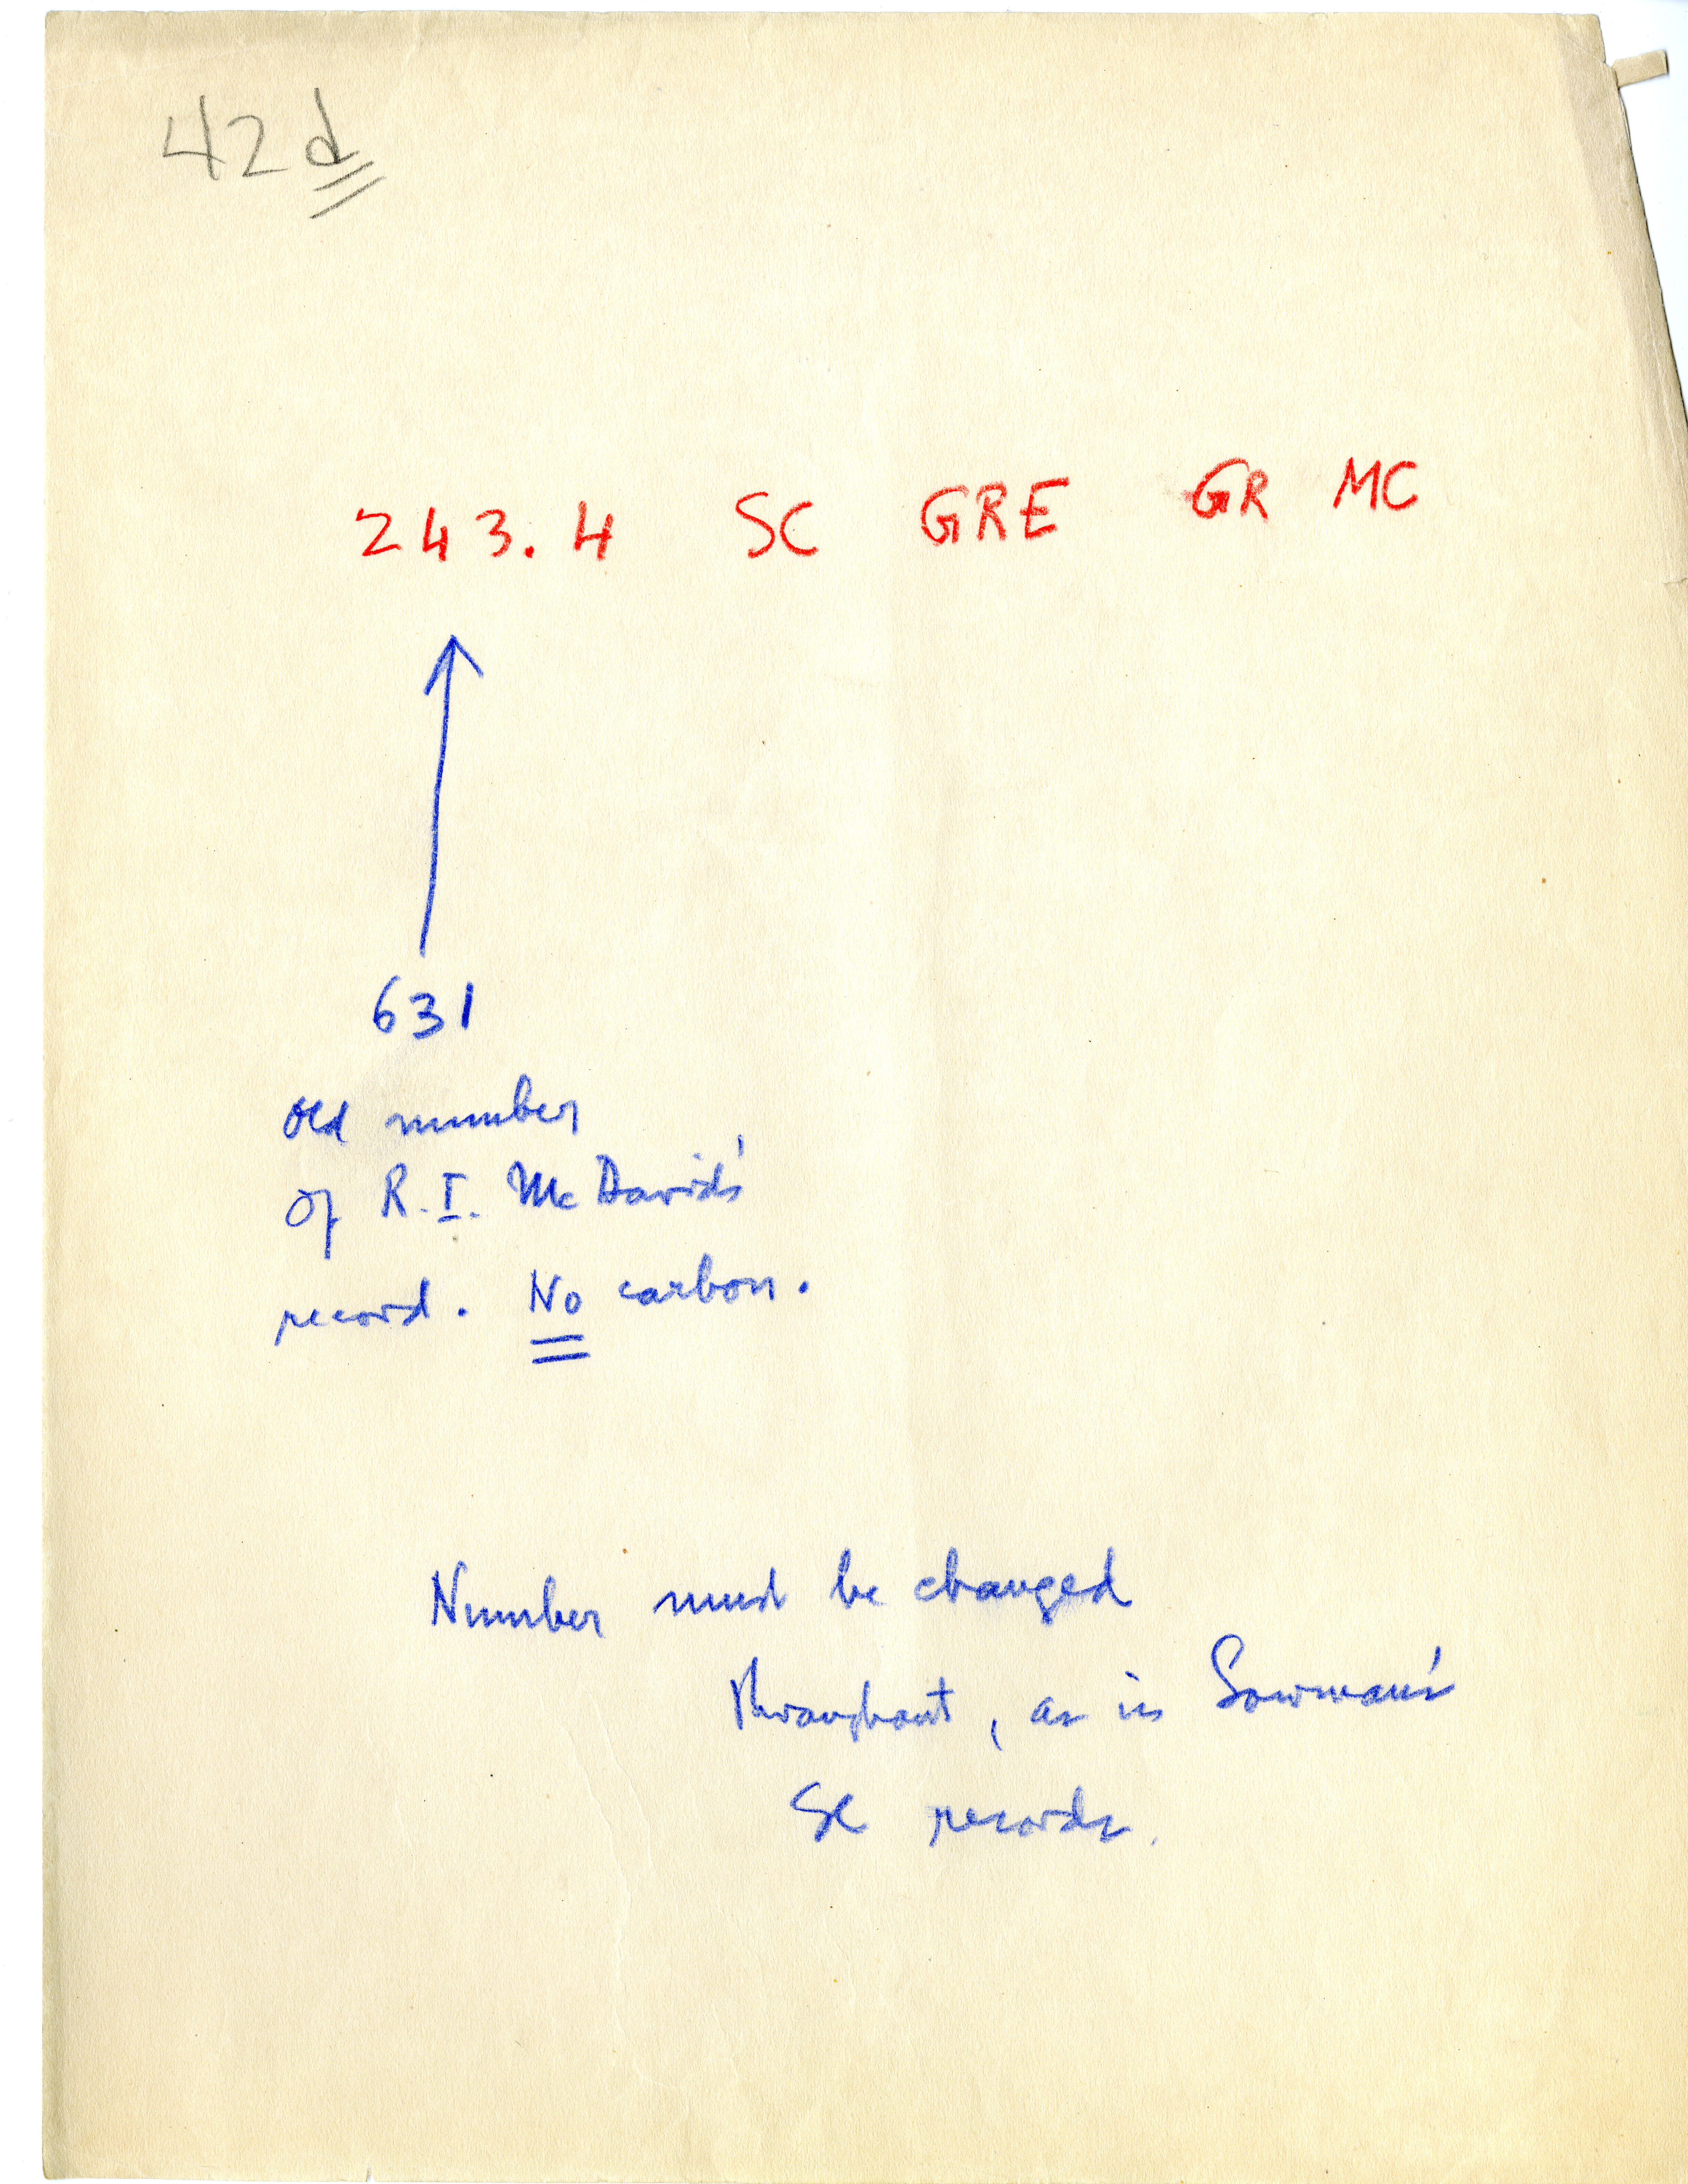 42d
243.4 SC GRE GR MC
631
old number
of R.I. McDavid's
record. No carbon.
Number must be changed
throughout, as in Lowman's
SC records.